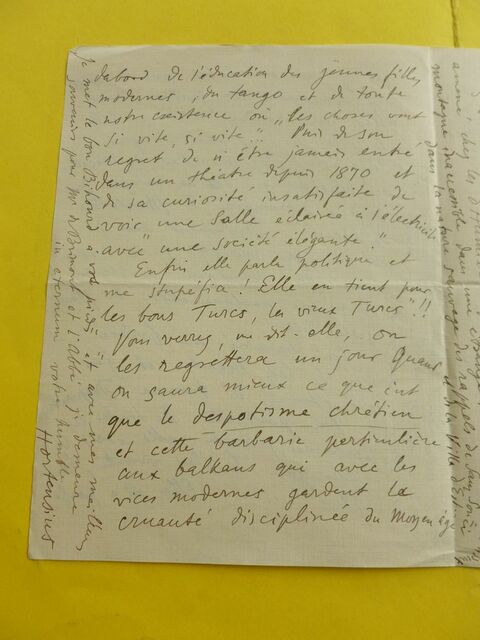 dabord de l'éducation des jeunes filles
modernes, du tango et de toute
notre existence où "les choses vont
si vite, si vite"... Puis de son
regret de n'être jamais entré
dans un théâtre depuis 1870 et
de sa curiosité insatisfaite de
voir une salle éclairée à l'électricité
avec "une société élégante."
Enfin elle parla politique et
me stupéfia! Elle en tient pour
les bons Turcs, les vieux Turcs"!!
Vous verrez, me dit-elle, on
les regrettera un jour Quand
on saura mieux ce que c'est
que le despotisme chrétien
et cette barbarie particulière
aux balkans qui avec les
vices modernes gardent la
cruauté disciplinée du Moyen âge
Je met le bon à vos pieds, et avec mes meilleurs
souvenirs pour Mr de et l'Abbé, je demeure
in eternum votre humble
Hortensius
amené chez les
montagne inaccessible dans une étrange
dans la nature sauvage des